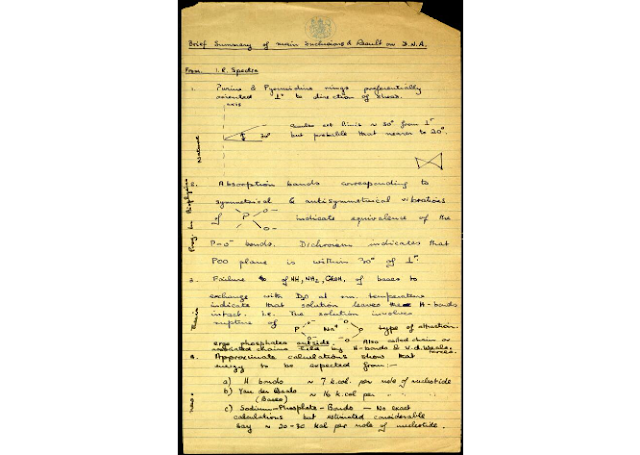 Brief Summary of main Inclusions & Result on D.N.A.
From I.R. Spectra
1. Purine & Pyrimidine rings preferentially
oriented ⊥r to direction of shear.
axis
limit is ~ 30° from ⊥r
but probable that nearer to 20°.
Nature
2. Absorption bands corresponding to
symmetrical & antisymmetrical vibrations
of P O- O- indicate equivalence of the
P-O- bonds. Dichroism indicates that
POO plane is within 30° of ⊥r.
3. Failure of NH, NH2, of bases to
exchange with D2O at rm. temperature
indicate that solution leaves the H-bonds
intact. i.e. The solution involves
rupture of P O- Na+ O- P type of attraction.
ergo phosphates outside. Also called chain or
chains tied by H-bonds & v.d. Waals forces.
4. Approximate calculations show that
energy to be expected from:-
a) H bonds ~ 7 k.cal. per mole of nucleotide
b) Van der Waals ~ 16 k.cal per " "
(Bases)
c) Sodium-Phosphate-Bonds — No exact
calculations but estimated considerable
say ~ 20-30 kcal per mole of nucleotide.